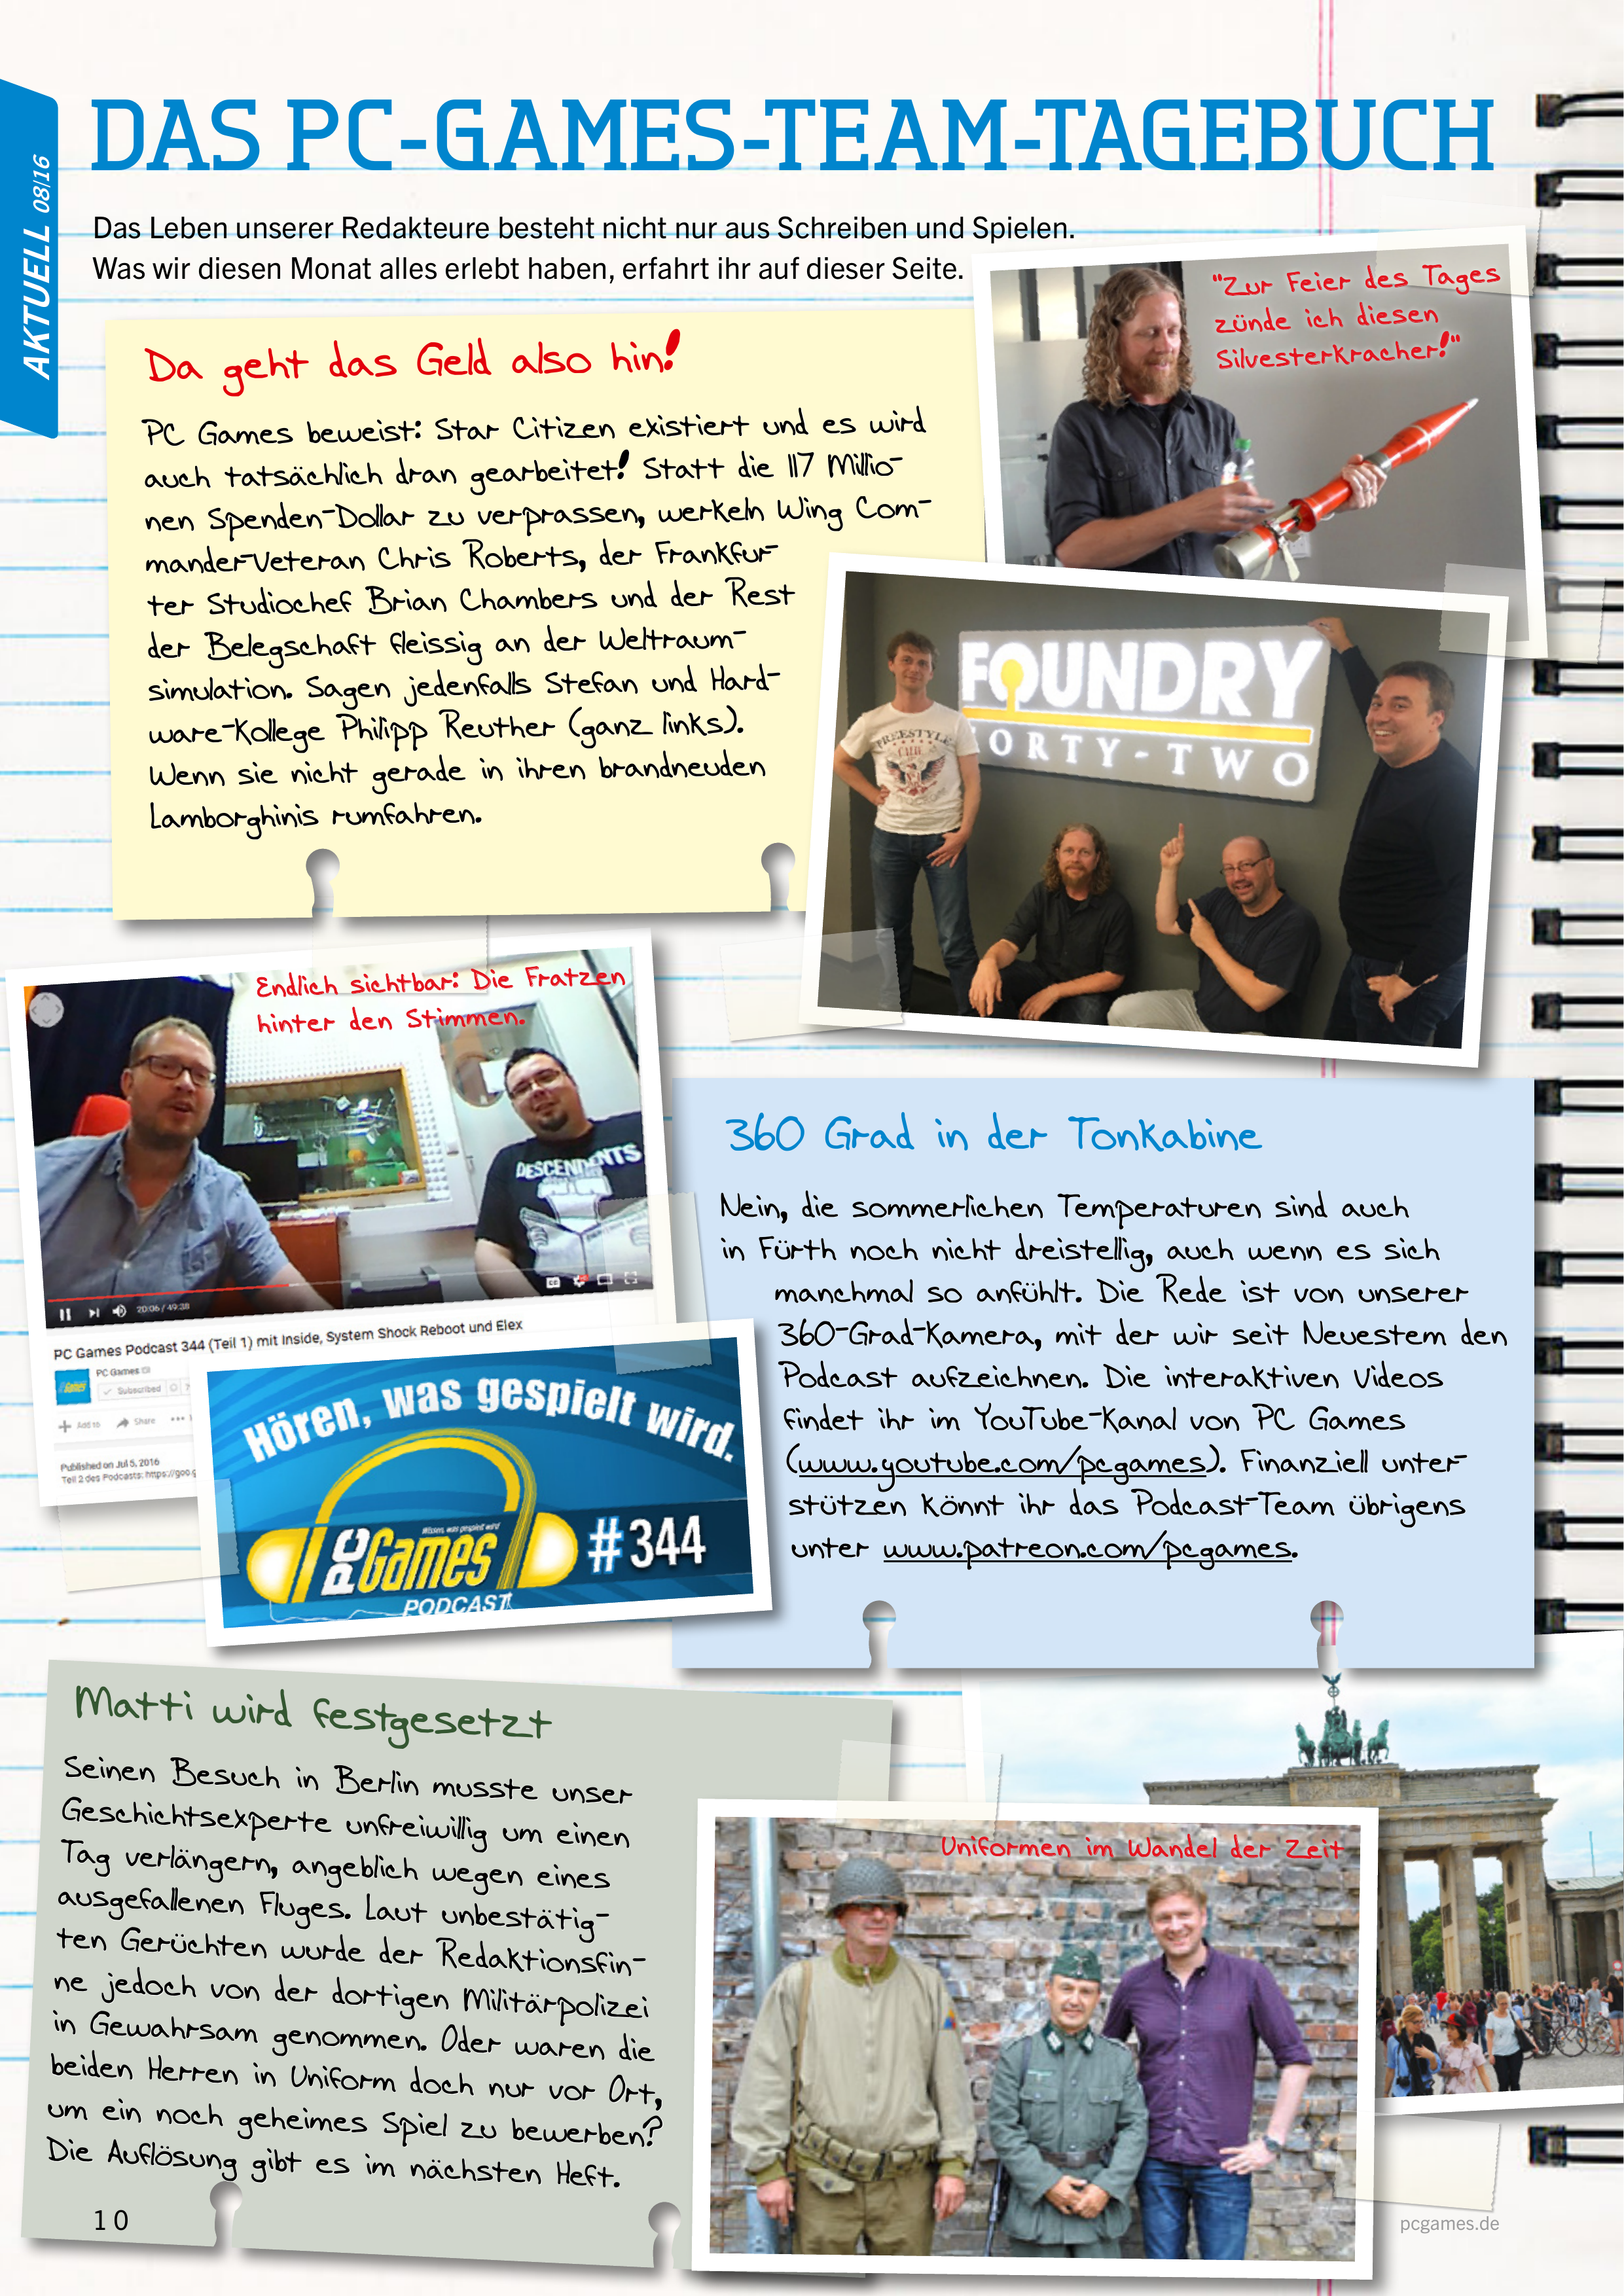 AKTUELL 08|16
DAS PC-GAMES-TEAM-TAGEBUCH
Das Leben unserer Redakteure besteht nicht nur aus Schreiben und Spielen.
Was wir diesen Monat alles erlebt haben, erfahrt ihr auf dieser Seite.
"Zur Feier des Tages
zünde ich diesen
Silvesterkracher!"
Da geht das Geld also hin!
PC Games beweist: Star Citizen existiert und es wird
auch tatsächlich dran gearbeitet! Statt die 117 Millio-
nen Spenden-Dollar zu verprassen, werkeln Wing Com-
mander-Veteran Chris Roberts, der Frankfur-
ter Studiochef Brian Chambers und der Rest
der Belegschaft fleissig an der Weltraum-
simulation. Sagen jedenfalls Stefan und Hard-
ware-Kollege Philipp Reuther (ganz links).
Wenn sie nicht gerade in ihren brandneuden
Lamborghinis rumfahren.
FOUNDRY
FORTY-TWO
FREESTYLE
Endlich sichtbar: Die Fratzen
hinter den Stimmen.
DESCENDENTS
20:06 / 49:38
PC Games Podcast 344 (Teil 1) mit Inside, System Shock Reboot und Elex
PC Games
Subscribed
Add to Share
Published on Jul 5, 2016
Teil 2 des Podcasts: https://goo.g
Hören, was gespielt wird.
Wissen, was gespielt wird
PC Games #344
PODCAST
360 Grad in der Tonkabine
Nein, die sommerlichen Temperaturen sind auch
in Fürth noch nicht dreistellig, auch wenn es sich
manchmal so anfühlt. Die Rede ist von unserer
360-Grad-Kamera, mit der wir seit Neuestem den
Podcast aufzeichnen. Die interaktiven Videos
findet ihr im YouTube-Kanal von PC Games
(www.youtube.com/pcgames). Finanziell unter-
stützen könnt ihr das Podcast-Team übrigens
unter www.patreon.com/pcgames.
Matti wird festgesetzt
Seinen Besuch in Berlin musste unser
Geschichtsexperte unfreiwillig um einen
Tag verlängern, angeblich wegen eines
ausgefallenen Fluges. Laut unbestätig-
ten Gerüchten wurde der Redaktionsfin-
ne jedoch von der dortigen Militärpolizei
in Gewahrsam genommen. Oder waren die
beiden Herren in Uniform doch nur vor Ort,
um ein noch geheimes Spiel zu bewerben?
Die Auflösung gibt es im nächsten Heft.
Uniformen im Wandel der Zeit
10
pcgames.de